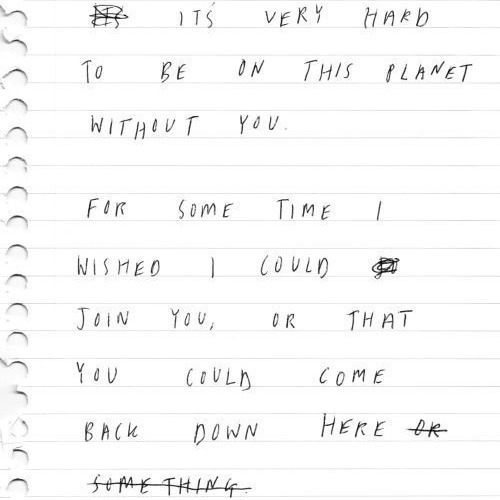 IT'S VERY HARD
TO BE ON THIS PLANET
WITHOUT YOU.
FOR SOME TIME I
WISHED I COULD
JOIN YOU, OR THAT
YOU COULD COME
BACK DOWN HERE OR
SOMETHING.